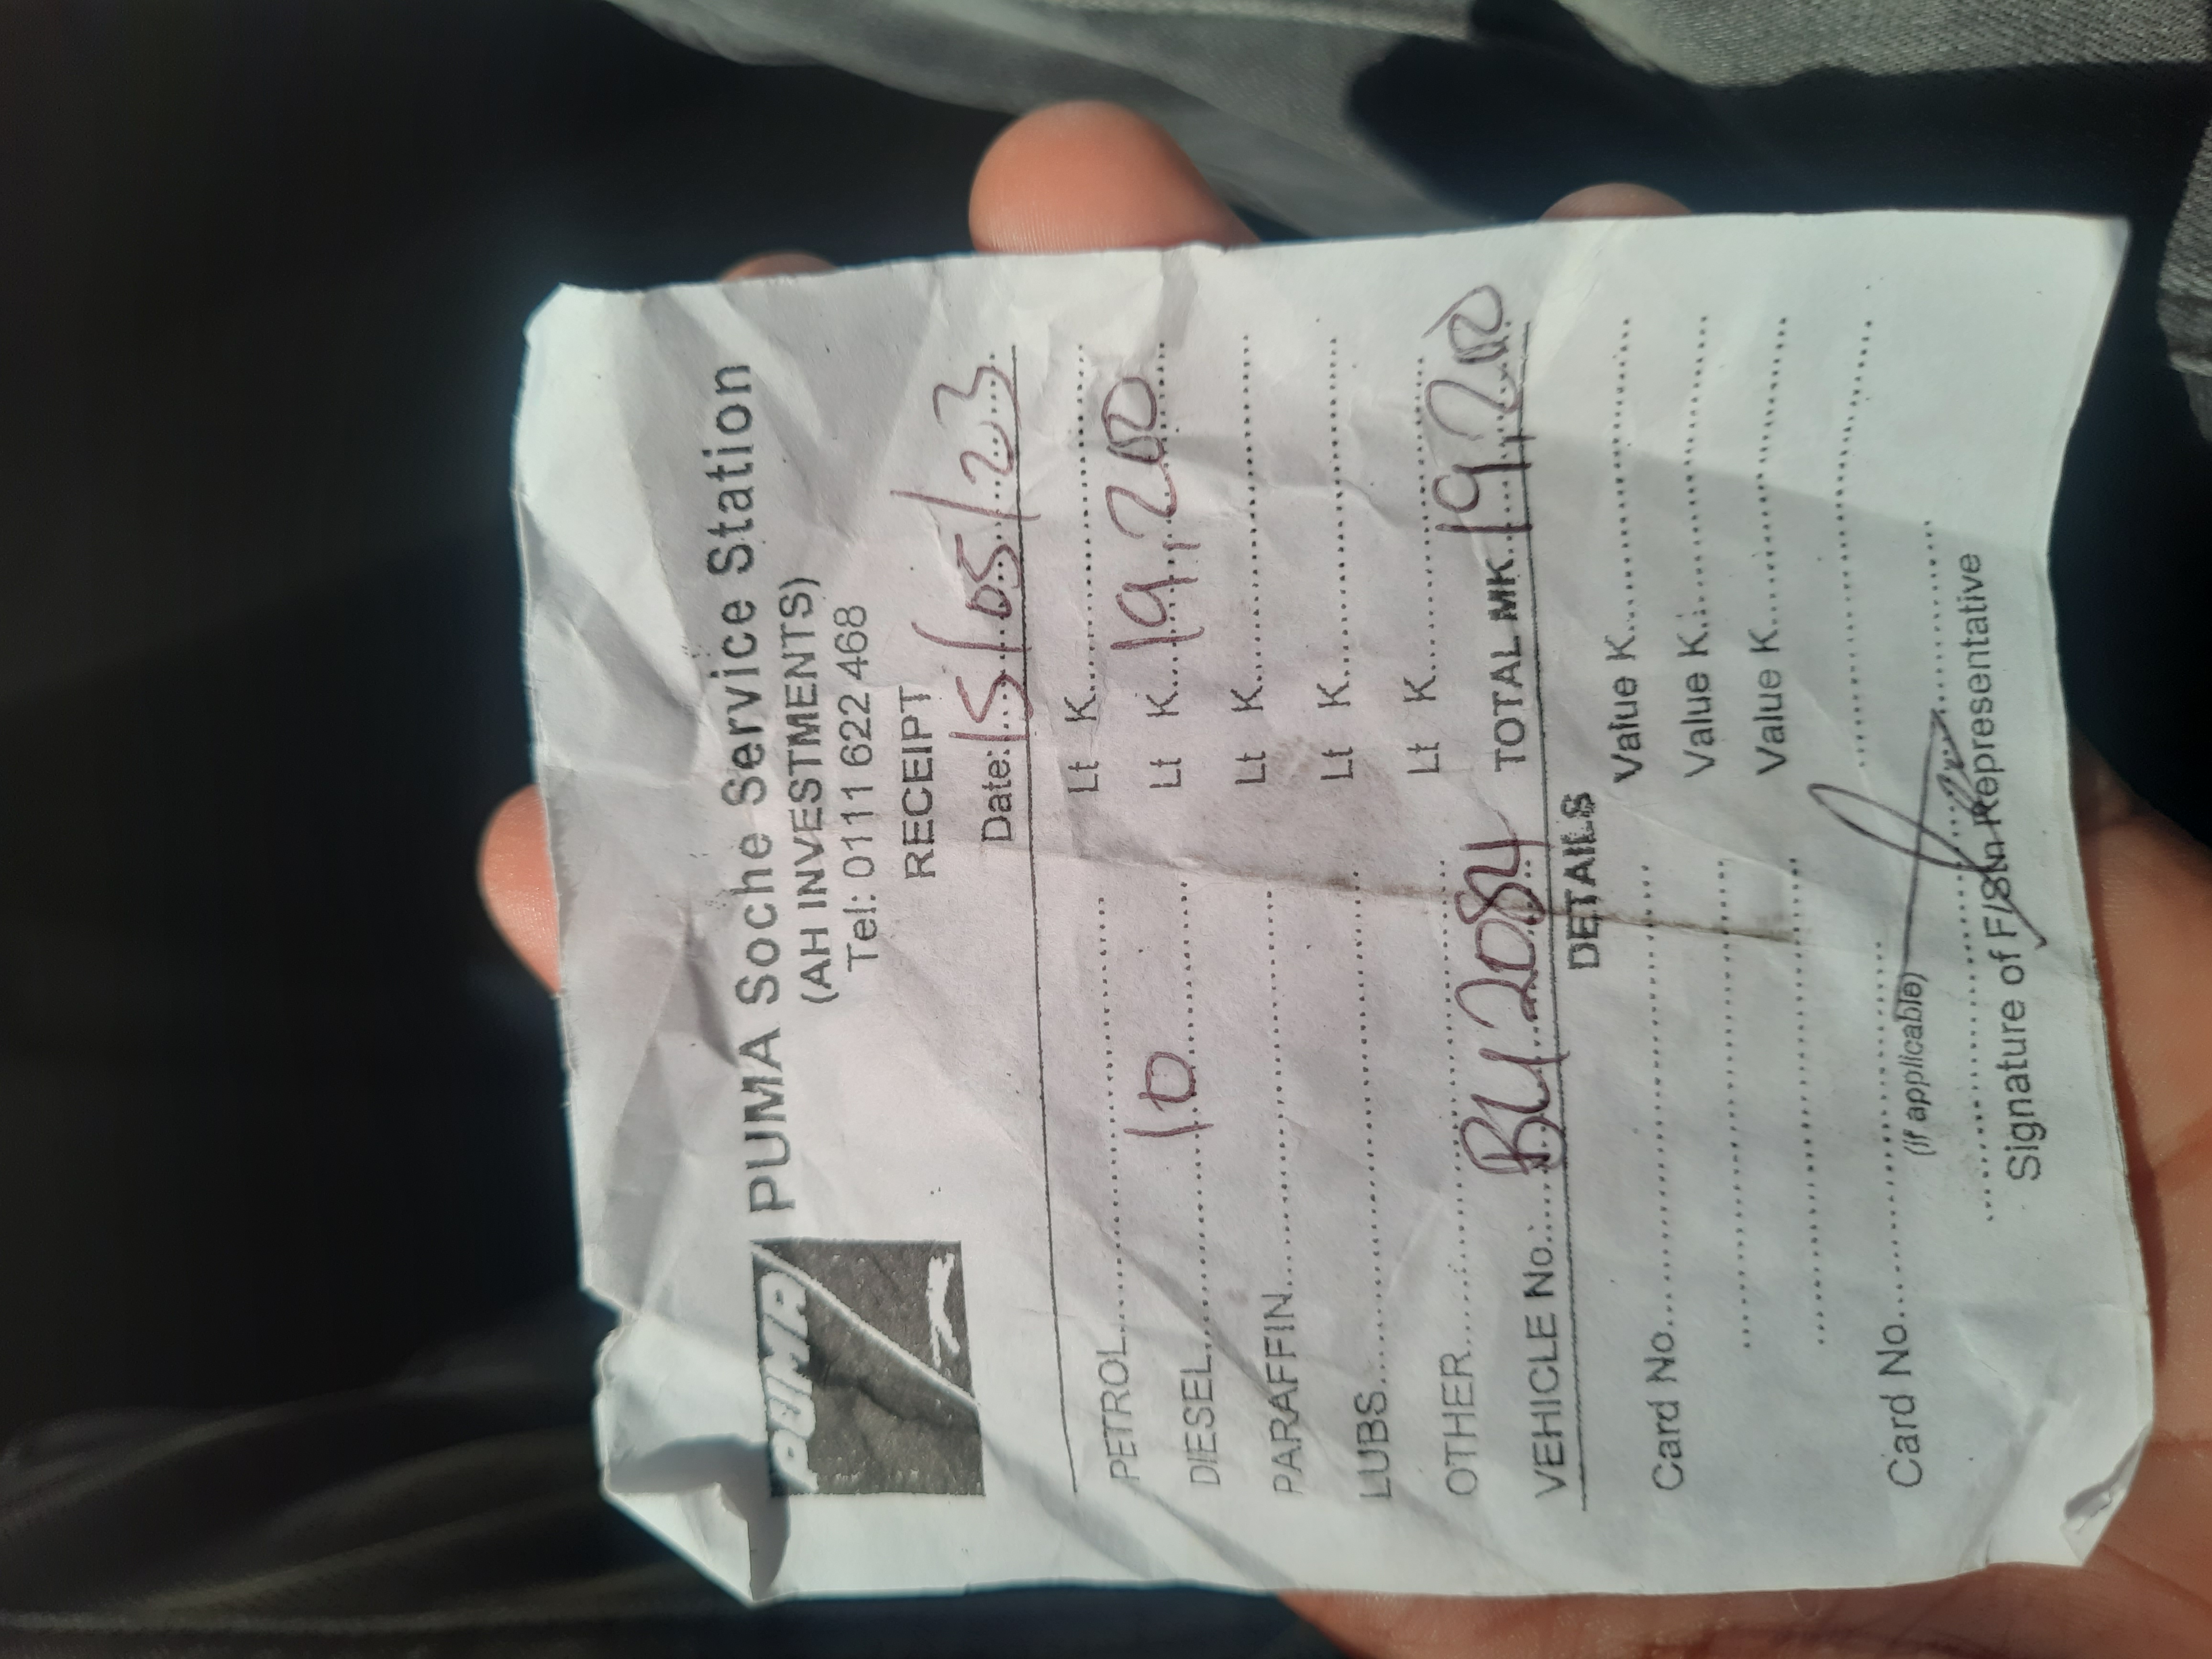 PUMA
PUMA Soche Service Station
(AH INVESTMENTS)
Tel: 0111 622 468
RECEIPT
Date: 15/05/23
PETROL.............................. Lt K..............................
DIESEL 10 Lt K 19,200
PARAFFIN.............................. Lt K..............................
LUBS.............................. Lt K..............................
OTHER.............................. Lt K..............................
VEHICLE No.: BU 2084 TOTAL MK 19,200
DETAILS
Card No.............................. Value K..............................
Value K..............................
Value K..............................
Card No..............................
(if applicable)
Signature of F/Stn Representative